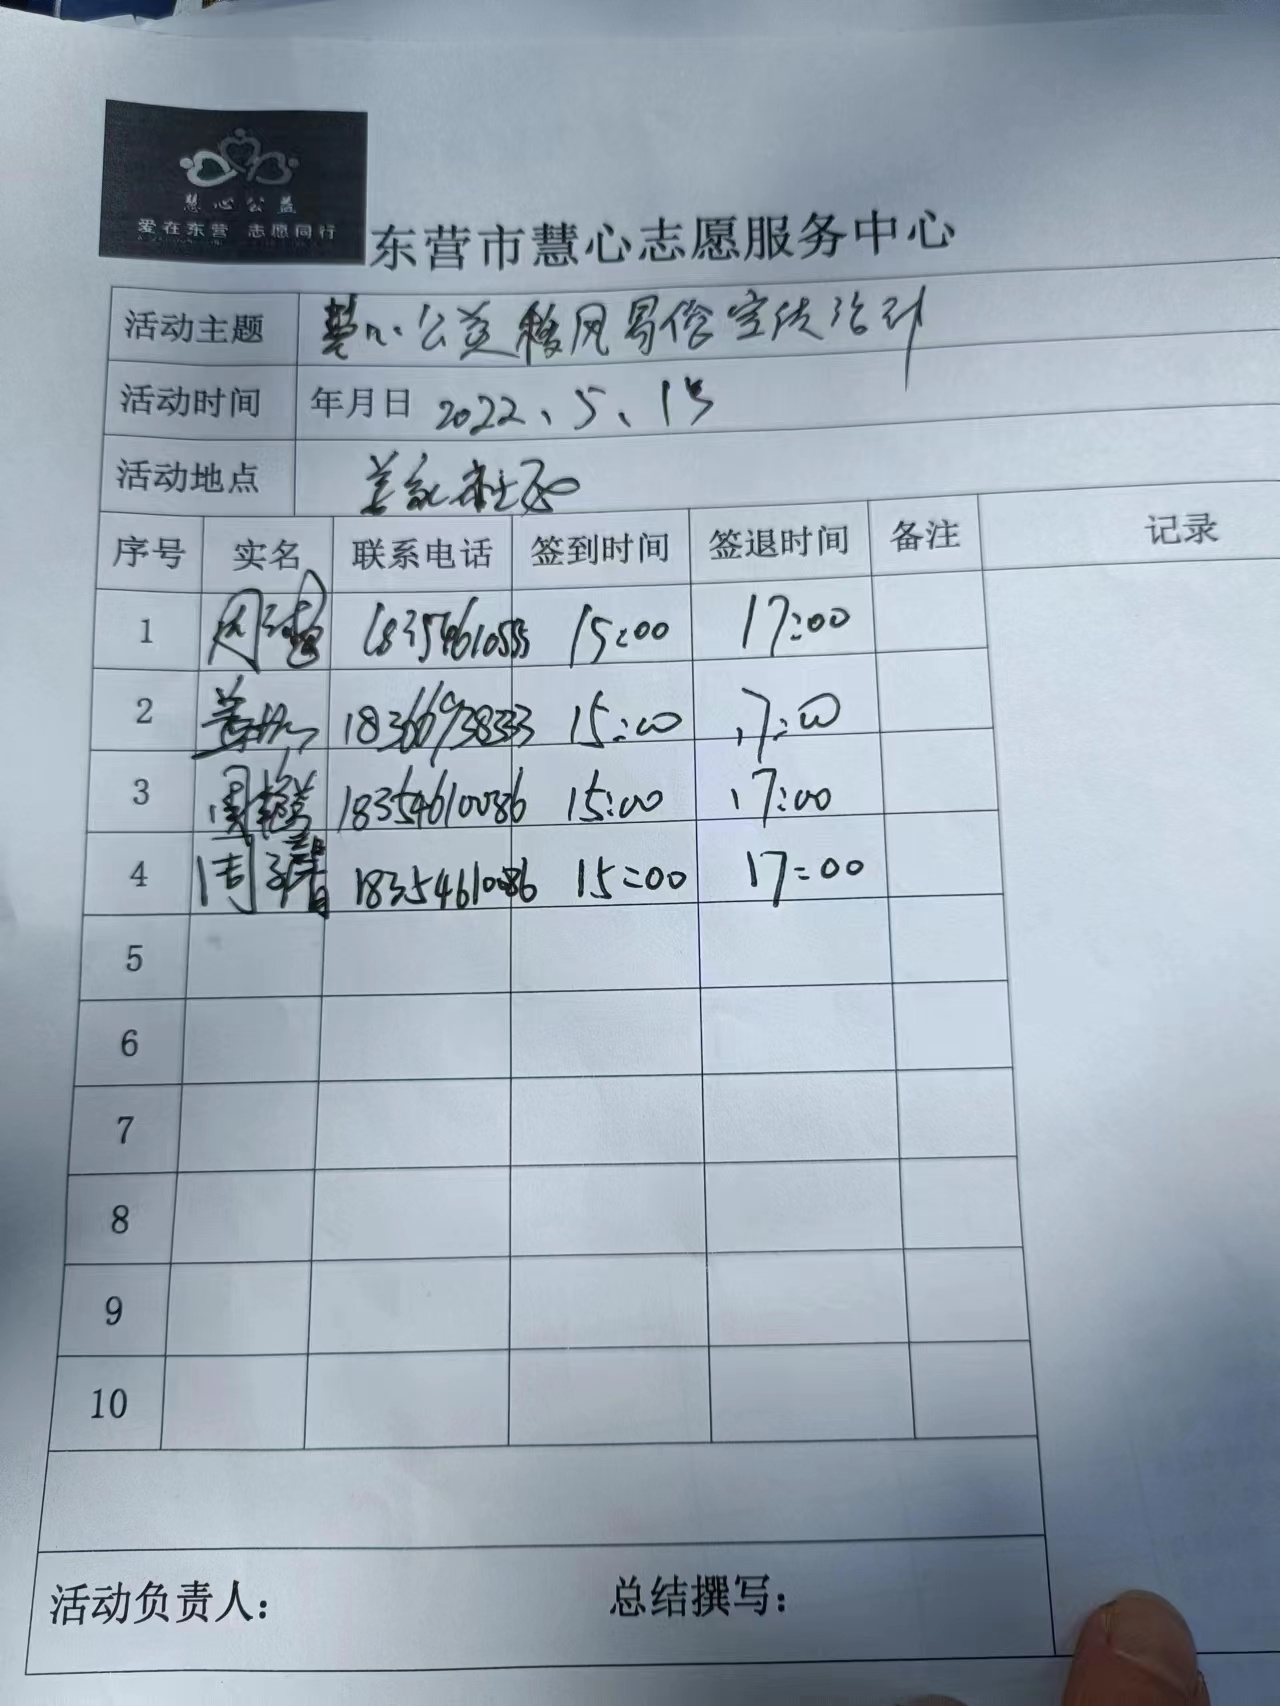 慧心公益
爱在东营 志愿同行
东营市慧心志愿服务中心
活动主题 慧心公益移风易俗宣传活动
活动时间 年月日 2022、5、15
活动地点 社区
序号 实名 联系电话 签到时间 签退时间 备注 记录
1 周 15:00 17:00
2 18366693833 15:00 17:00
3 周 18354610086 15:00 17:00
4 周 18354610086 15:00 17:00
5
6
7
8
9
10
活动负责人: 总结撰写: